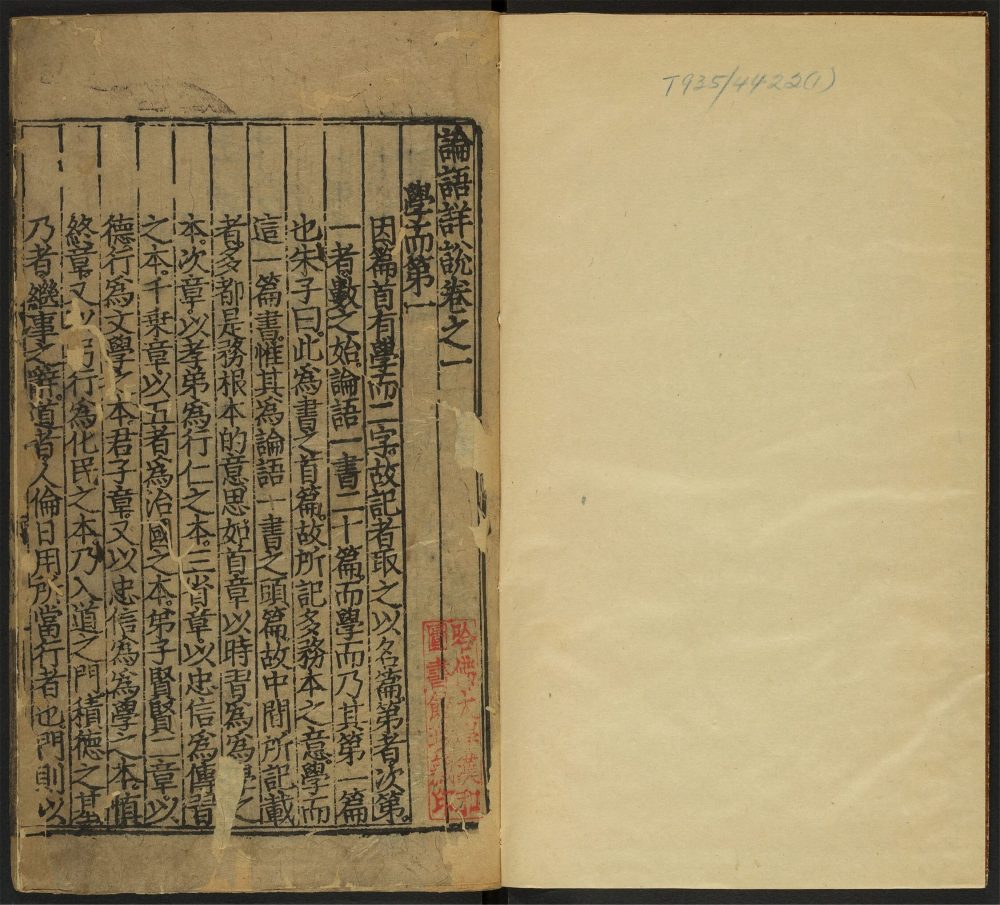 T935/4422(1)
論語詳說卷之一
學而第一
因篇首有學而二字故記者取之以名篇第者次第
一者數之始論語一書二十篇而學而乃其第一篇
也朱子曰此為書之首篇故所記多務本之意學而
這一篇書惟其為論語一書之頭篇故中間所記載
者多都是務根本的意思如首章以時習為為學之
本次章以孝弟為行仁之本三省章以忠信為傳習
之本千乗章以五者為治國之本弟子賢賢二章以
德行為文學之本君子章又以忠信為為學之本慎
終章又以行為化民之本乃入道之門積德之基
乃者繼事之辭道者人倫日用所當行者也門則以
哈佛大學漢和
圖書館珍藏印